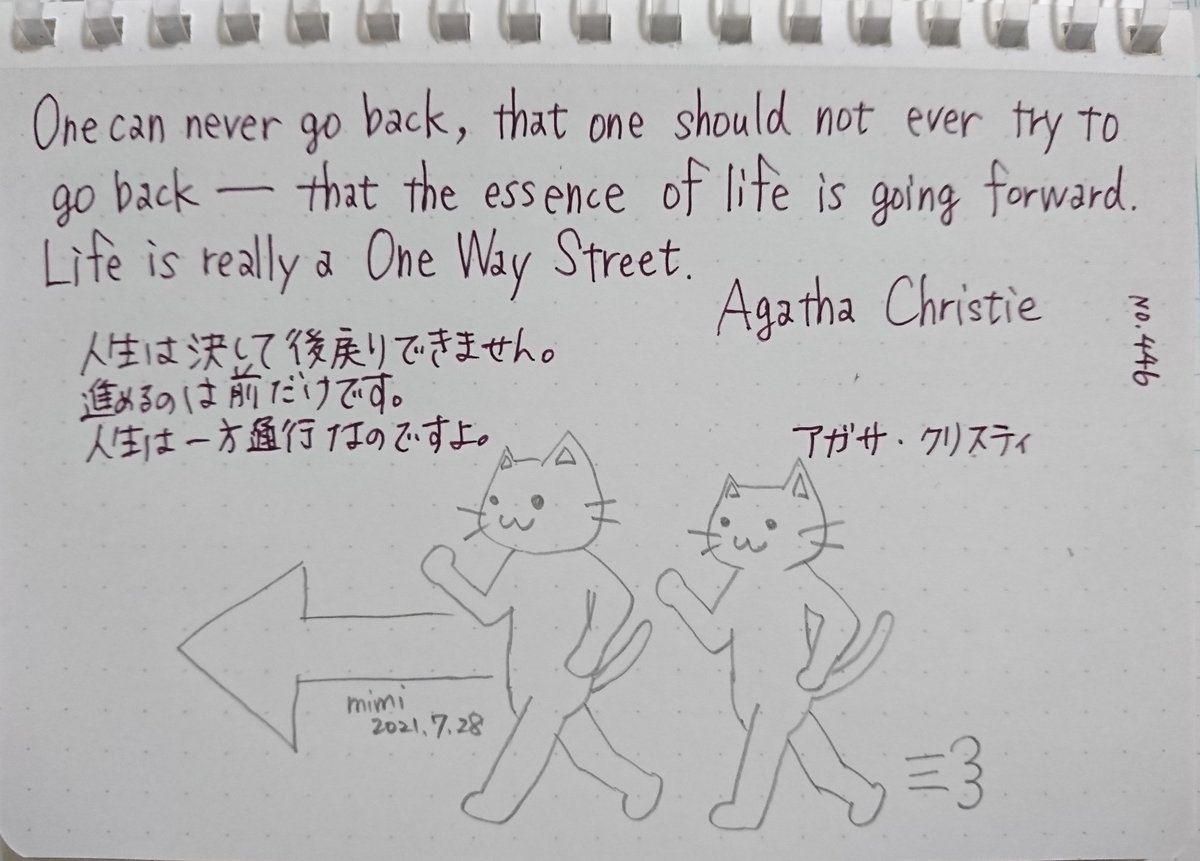 One can never go back, that one should not ever try to
go back — that the essence of life is going forward.
Life is really a One Way Street.
Agatha Christie
No.446
人生は決して後戻りできません。
進めるのは前だけです。
人生は一方通行なのですよ。
アガサ・クリスティ
mimi
2021.7.28